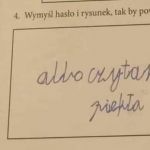 4. Wymyśl hasło i rysunek, tak by po
albo czytas
piekła